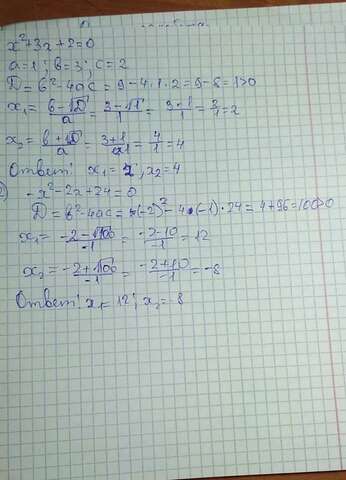 x²+3x+2=0
a=1; в=3; c=2
D=в²-4ac=9-4·1·2=9-8=1>0
x₁= (в-√D)/a = (3-√1)/1 = (3-1)/1 = 2/1 = 2
x₂= (в+√D)/a = (3+1)/1 = 4/1 = 4
Ответ: x₁=2, x₂=4
-x²-2x+24=0
D=в²-4ac=(-2)²-4·(-1)·24=4+96=100>0
x₁= (-2-√100)/-1 = (-2-10)/-1 = 12
x₂= (-2+√100)/-1 = (-2+10)/-1 = -8
Ответ: x₁=12; x₂=-8